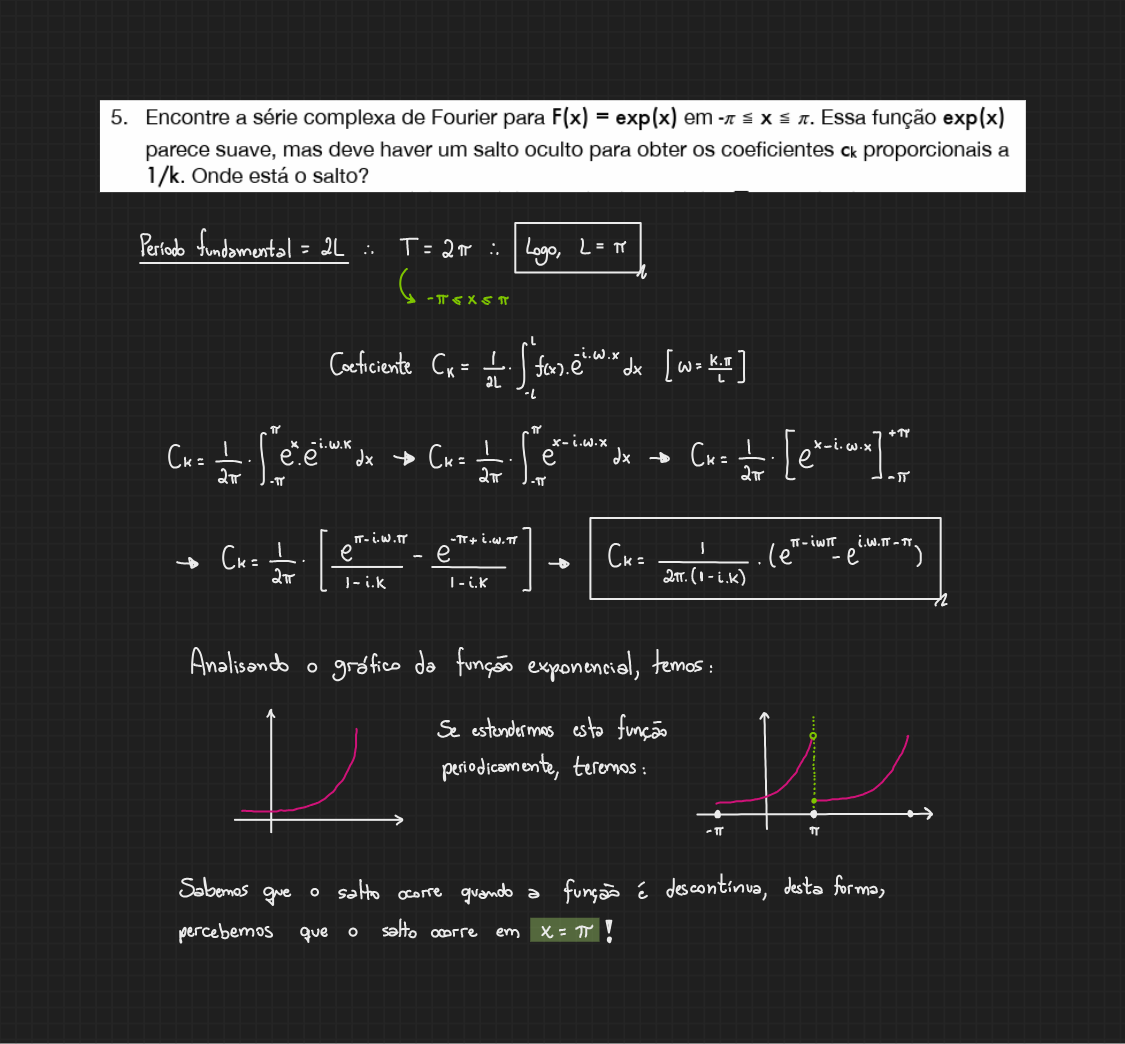 5. Encontre a série complexa de Fourier para F(x) = exp(x) em -π ≦ x ≦ π. Essa função exp(x)
parece suave, mas deve haver um salto oculto para obter os coeficientes cₖ proporcionais a
1/k. Onde está o salto?
Período fundamental = 2L ∴ T = 2π ∴ Logo, L = π
-π ≤ x ≤ π
Coeficiente Cₖ = 1/2L · ∫_{-L}^{L} f(x).e^{-i.ω.x} dx [ω = k.π/L]
Cₖ = 1/2π · ∫_{-π}^{π} e^{x}.e^{-i.ω.x} dx → Cₖ = 1/2π · ∫_{-π}^{π} e^{x-i.ω.x} dx → Cₖ = 1/2π · [e^{x-i.ω.x}]_{-π}^{+π}
→ Cₖ = 1/2π · [e^{π-i.ω.π}/(1-i.k) - e^{-π+i.ω.π}/(1-i.k)] → Cₖ = 1/(2π.(1-i.k)) · (e^{π-iωπ} - e^{i.ω.π-π})
Analisando o gráfico da função exponencial, temos:
Se estendermos esta função
periodicamente, teremos:
-π π
Sabemos que o salto ocorre quando a função é descontínua, desta forma,
percebemos que o salto ocorre em x = π !